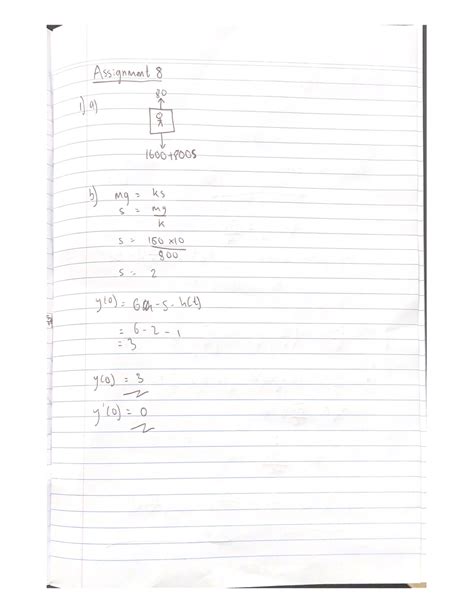 Assignment 8
1) a)
80
1600+800s
b) mg = ks
s = mg/k
s = 150 x10/800
s = 2
y(0) = 6 - s - h(t)
= 6 - 2 - 1
= 3
y(0) = 3
y'(0) = 0